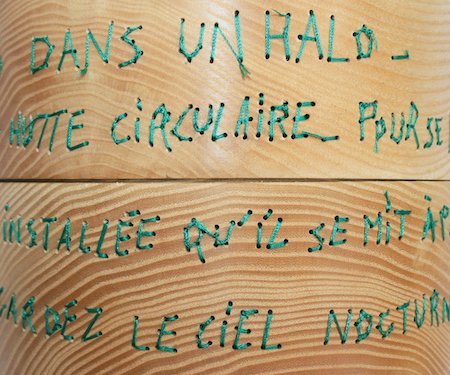 DANS UN HALO_
HUTTE CIRCULAIRE POUR SE
INSTALLÉE QU'IL SE MIT À P
ARDEZ LE CIEL NOCTURN